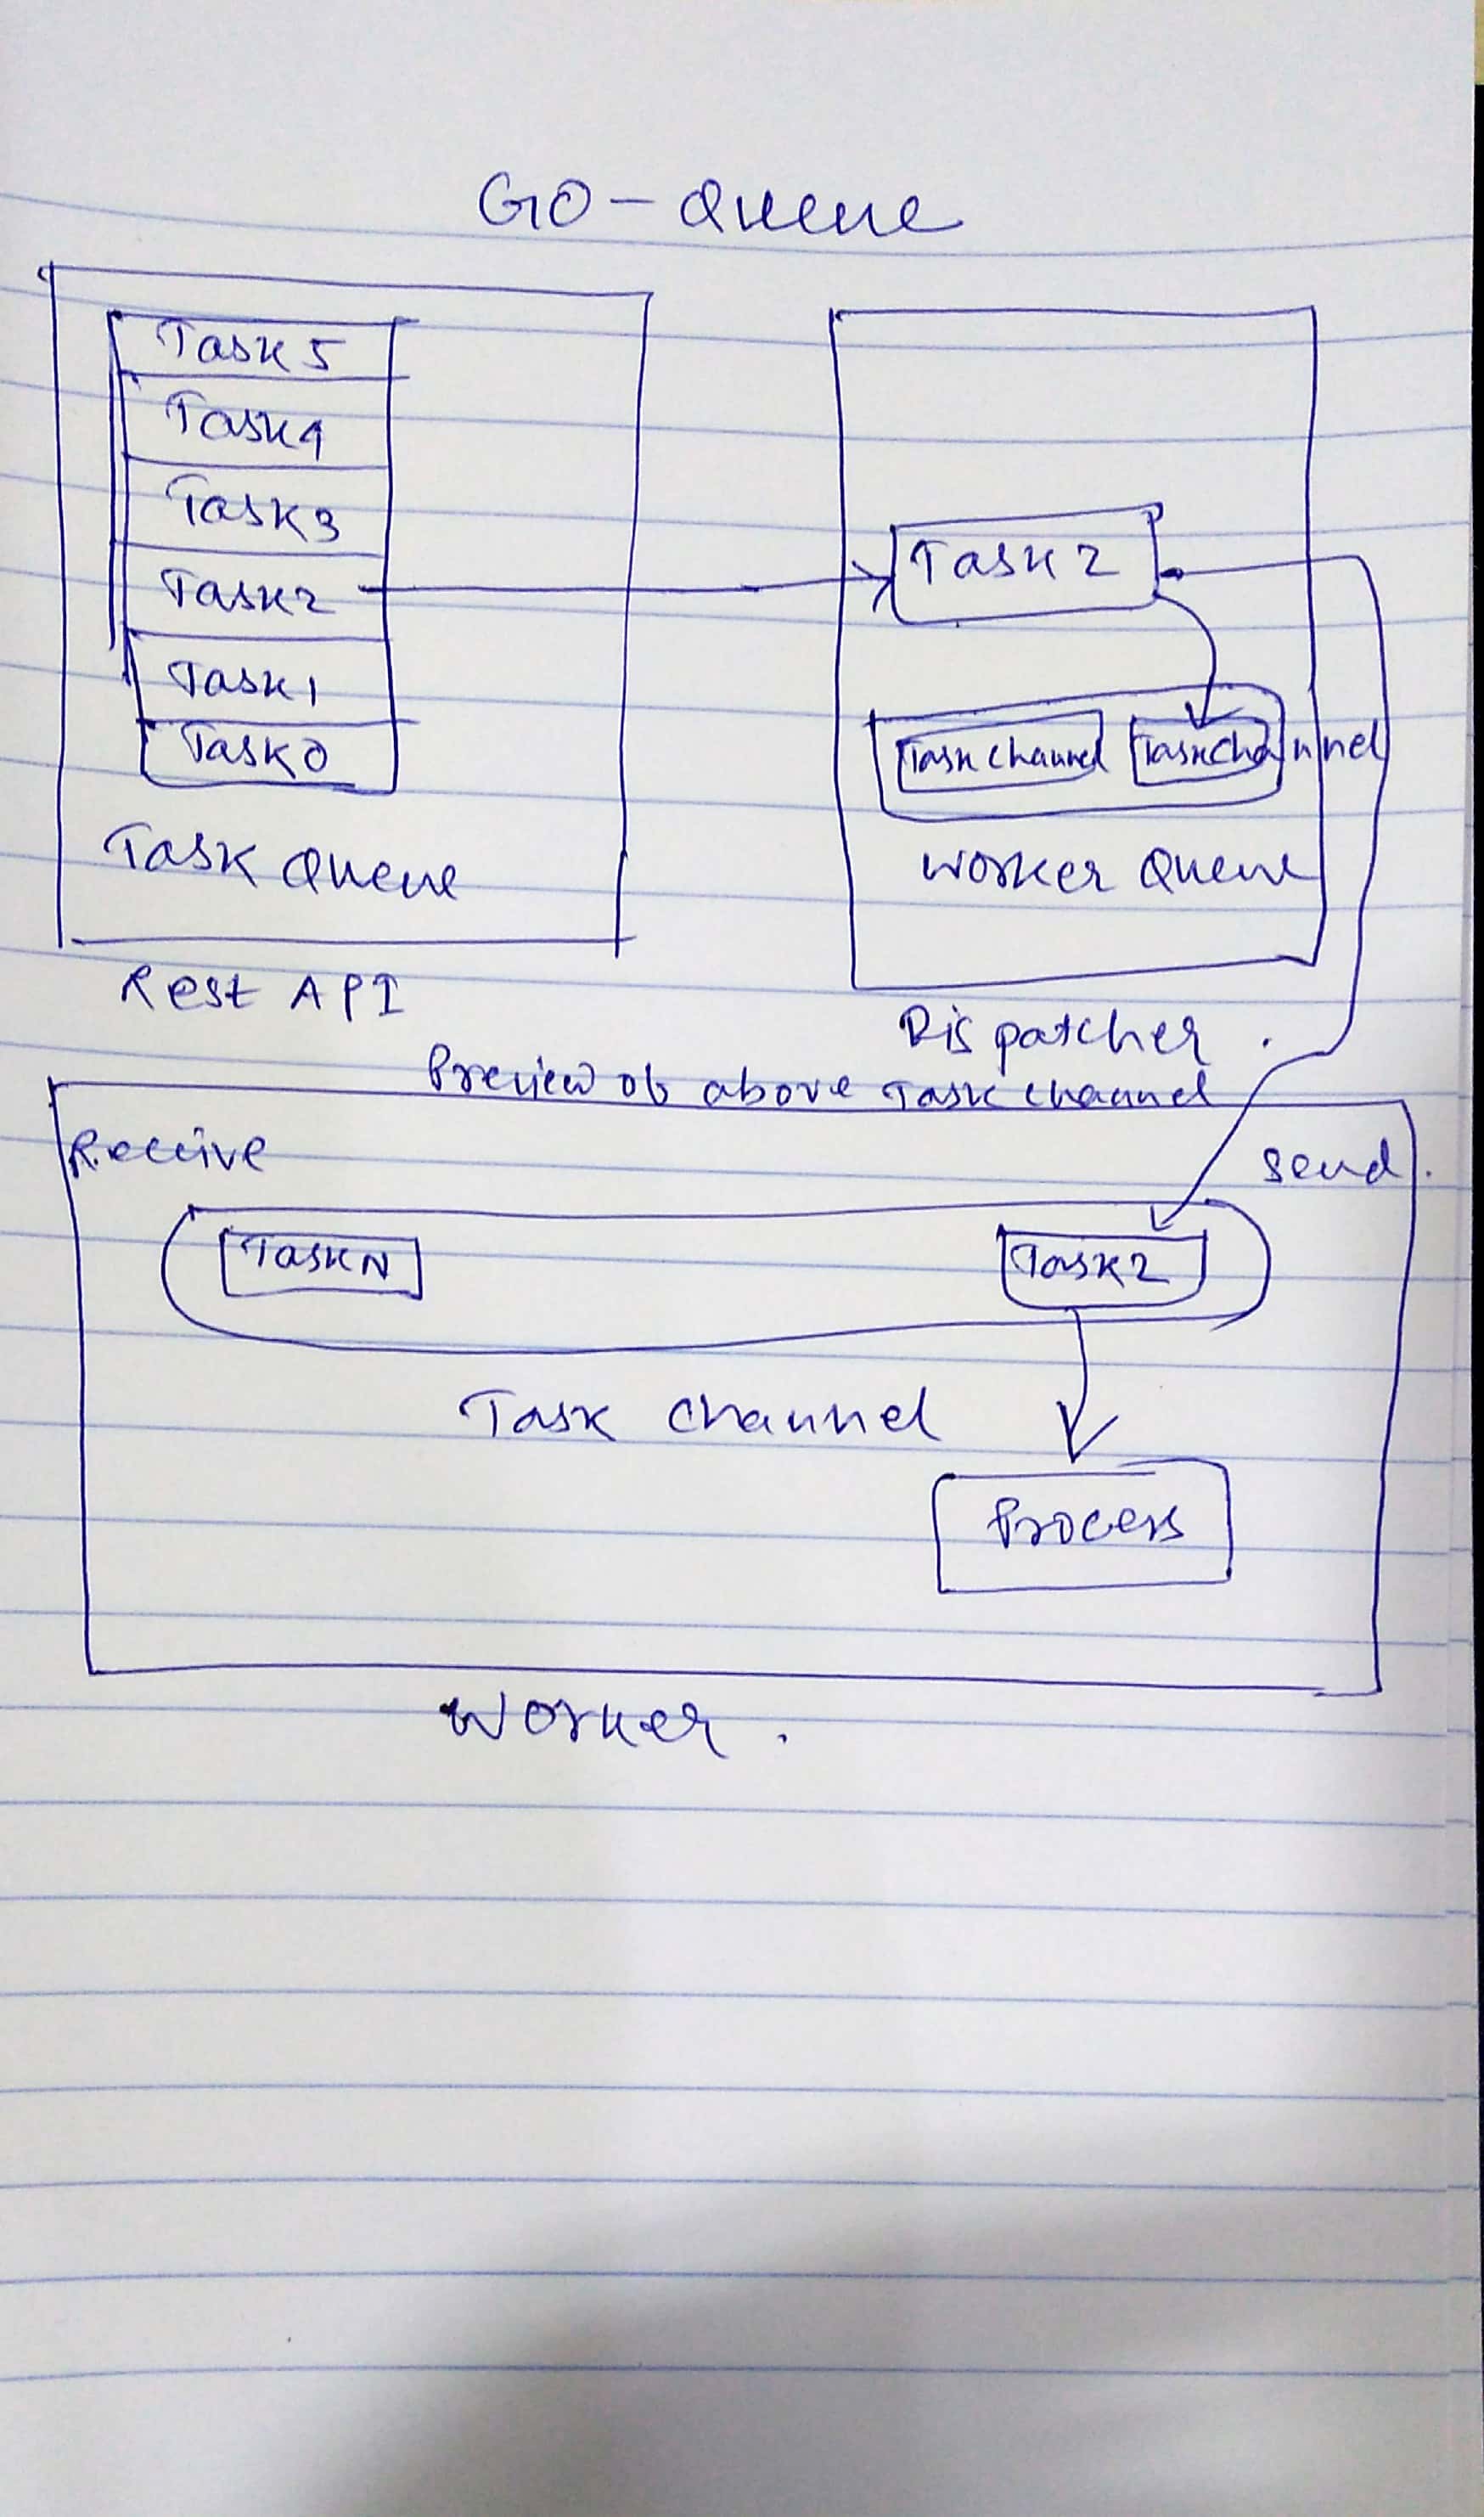 GO - Queue
Task 5
Task 4
Task 3
Task 2
Task 1
Task 0
Task Queue
Rest API
Task 2
Task channel
Task channel
Worker Queue
Dispatcher .
Preview of above Task channel
Receive
send .
Task N
Task 2
Task channel
Process
Worker .